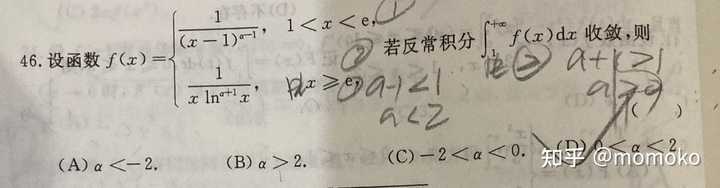 46. 设函数 f(x) = { 1/(x-1)^{α-1}, 1<x<e, ①
1/(x ln^{α+1} x), x≥e, ② 若反常积分 ∫_1^{+∞} f(x)dx 收敛,则
a-1<1
a<2
a+1>1
a>0
( )
(A) α<-2. (B) α>2. (C) -2<α<0. (D) 0<α<2.
知乎 @momoko